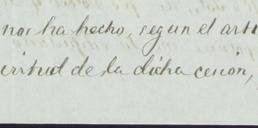 nos ha hecho, segun el arti
virtud de la dicha cesion,